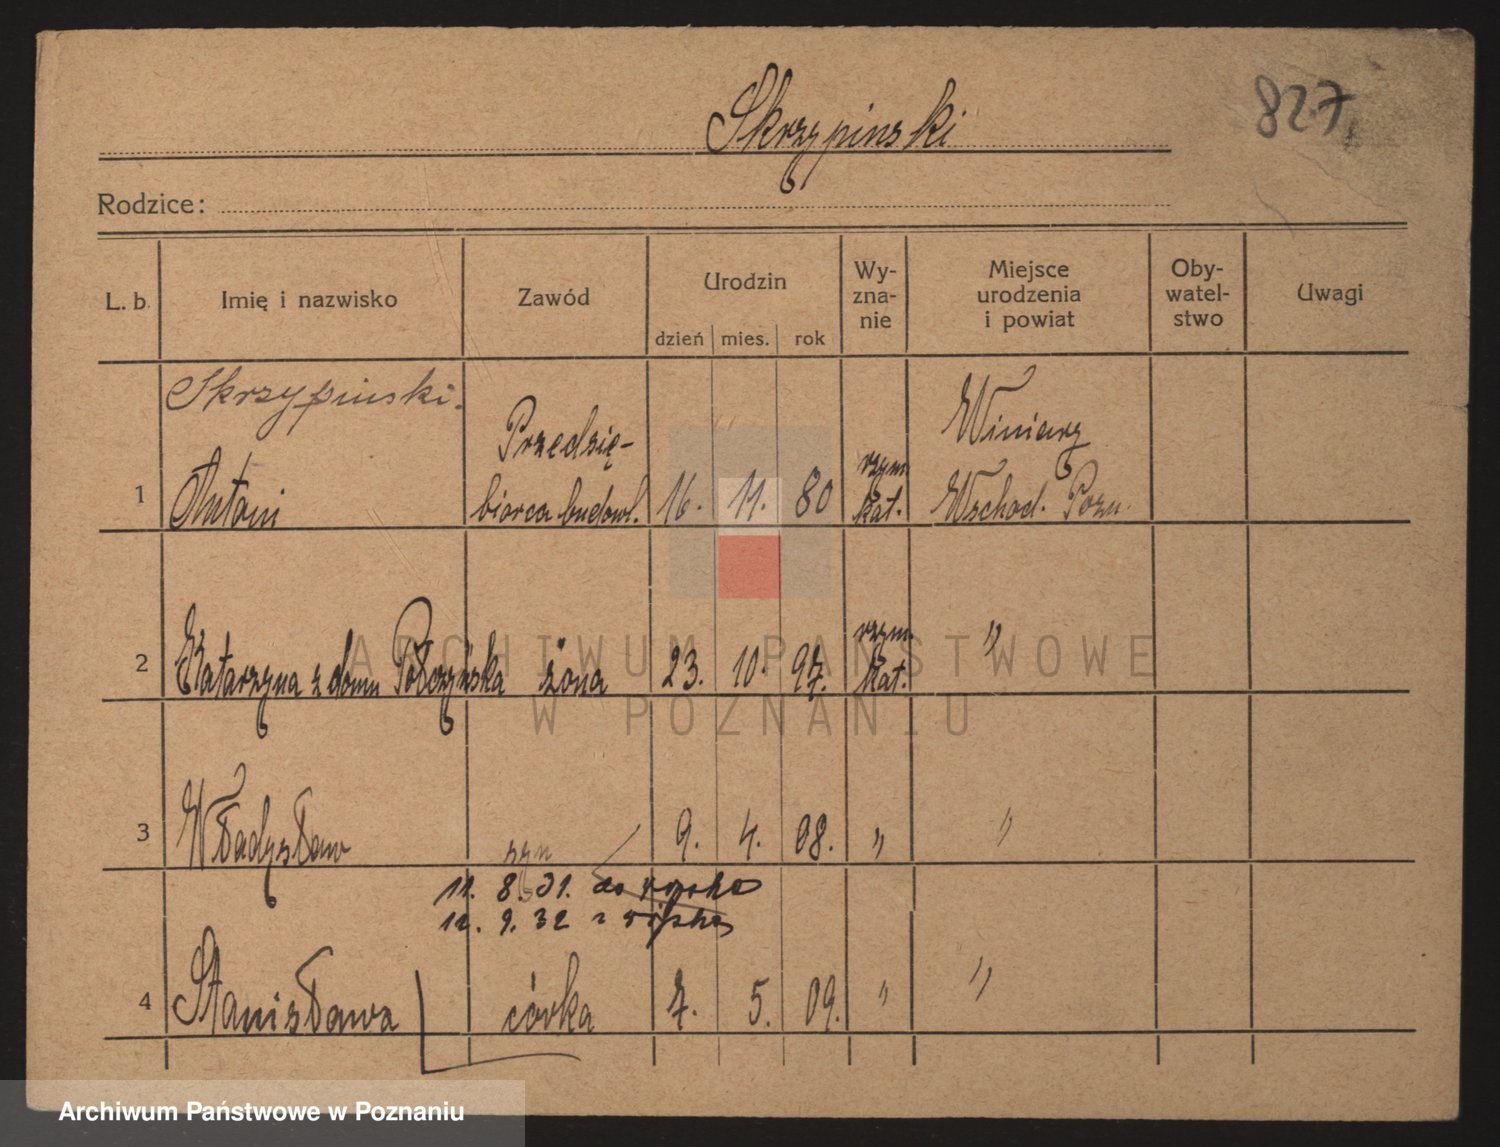 Skrzypinski
827
Rodzice:
L. b.
Imię i nazwisko
Zawód
Urodzin
dzień
mies.
rok
Wy-
zna-
nie
Miejsce
urodzenia
i powiat
Oby-
watel-
stwo
Uwagi
Skrzypinski.
1
Antoni
Przedsię-
biorca budowl.
16. 11. 80
rzym.
kat.
Winiary
Wschod. Pozn.
2
Katarzyna z domu żona
23. 10.
rzym.
kat.
"
3
Władysław
syn
9. 4. 08.
"
"
11. 8. 31. do wojska
12. 9. 32 z wojska
4
Stanisława
córka
7. 5. 09.
"
"
ARCHIWUM PAŃSTWOWE
W POZNANIU
Archiwum Państwowe w Poznaniu